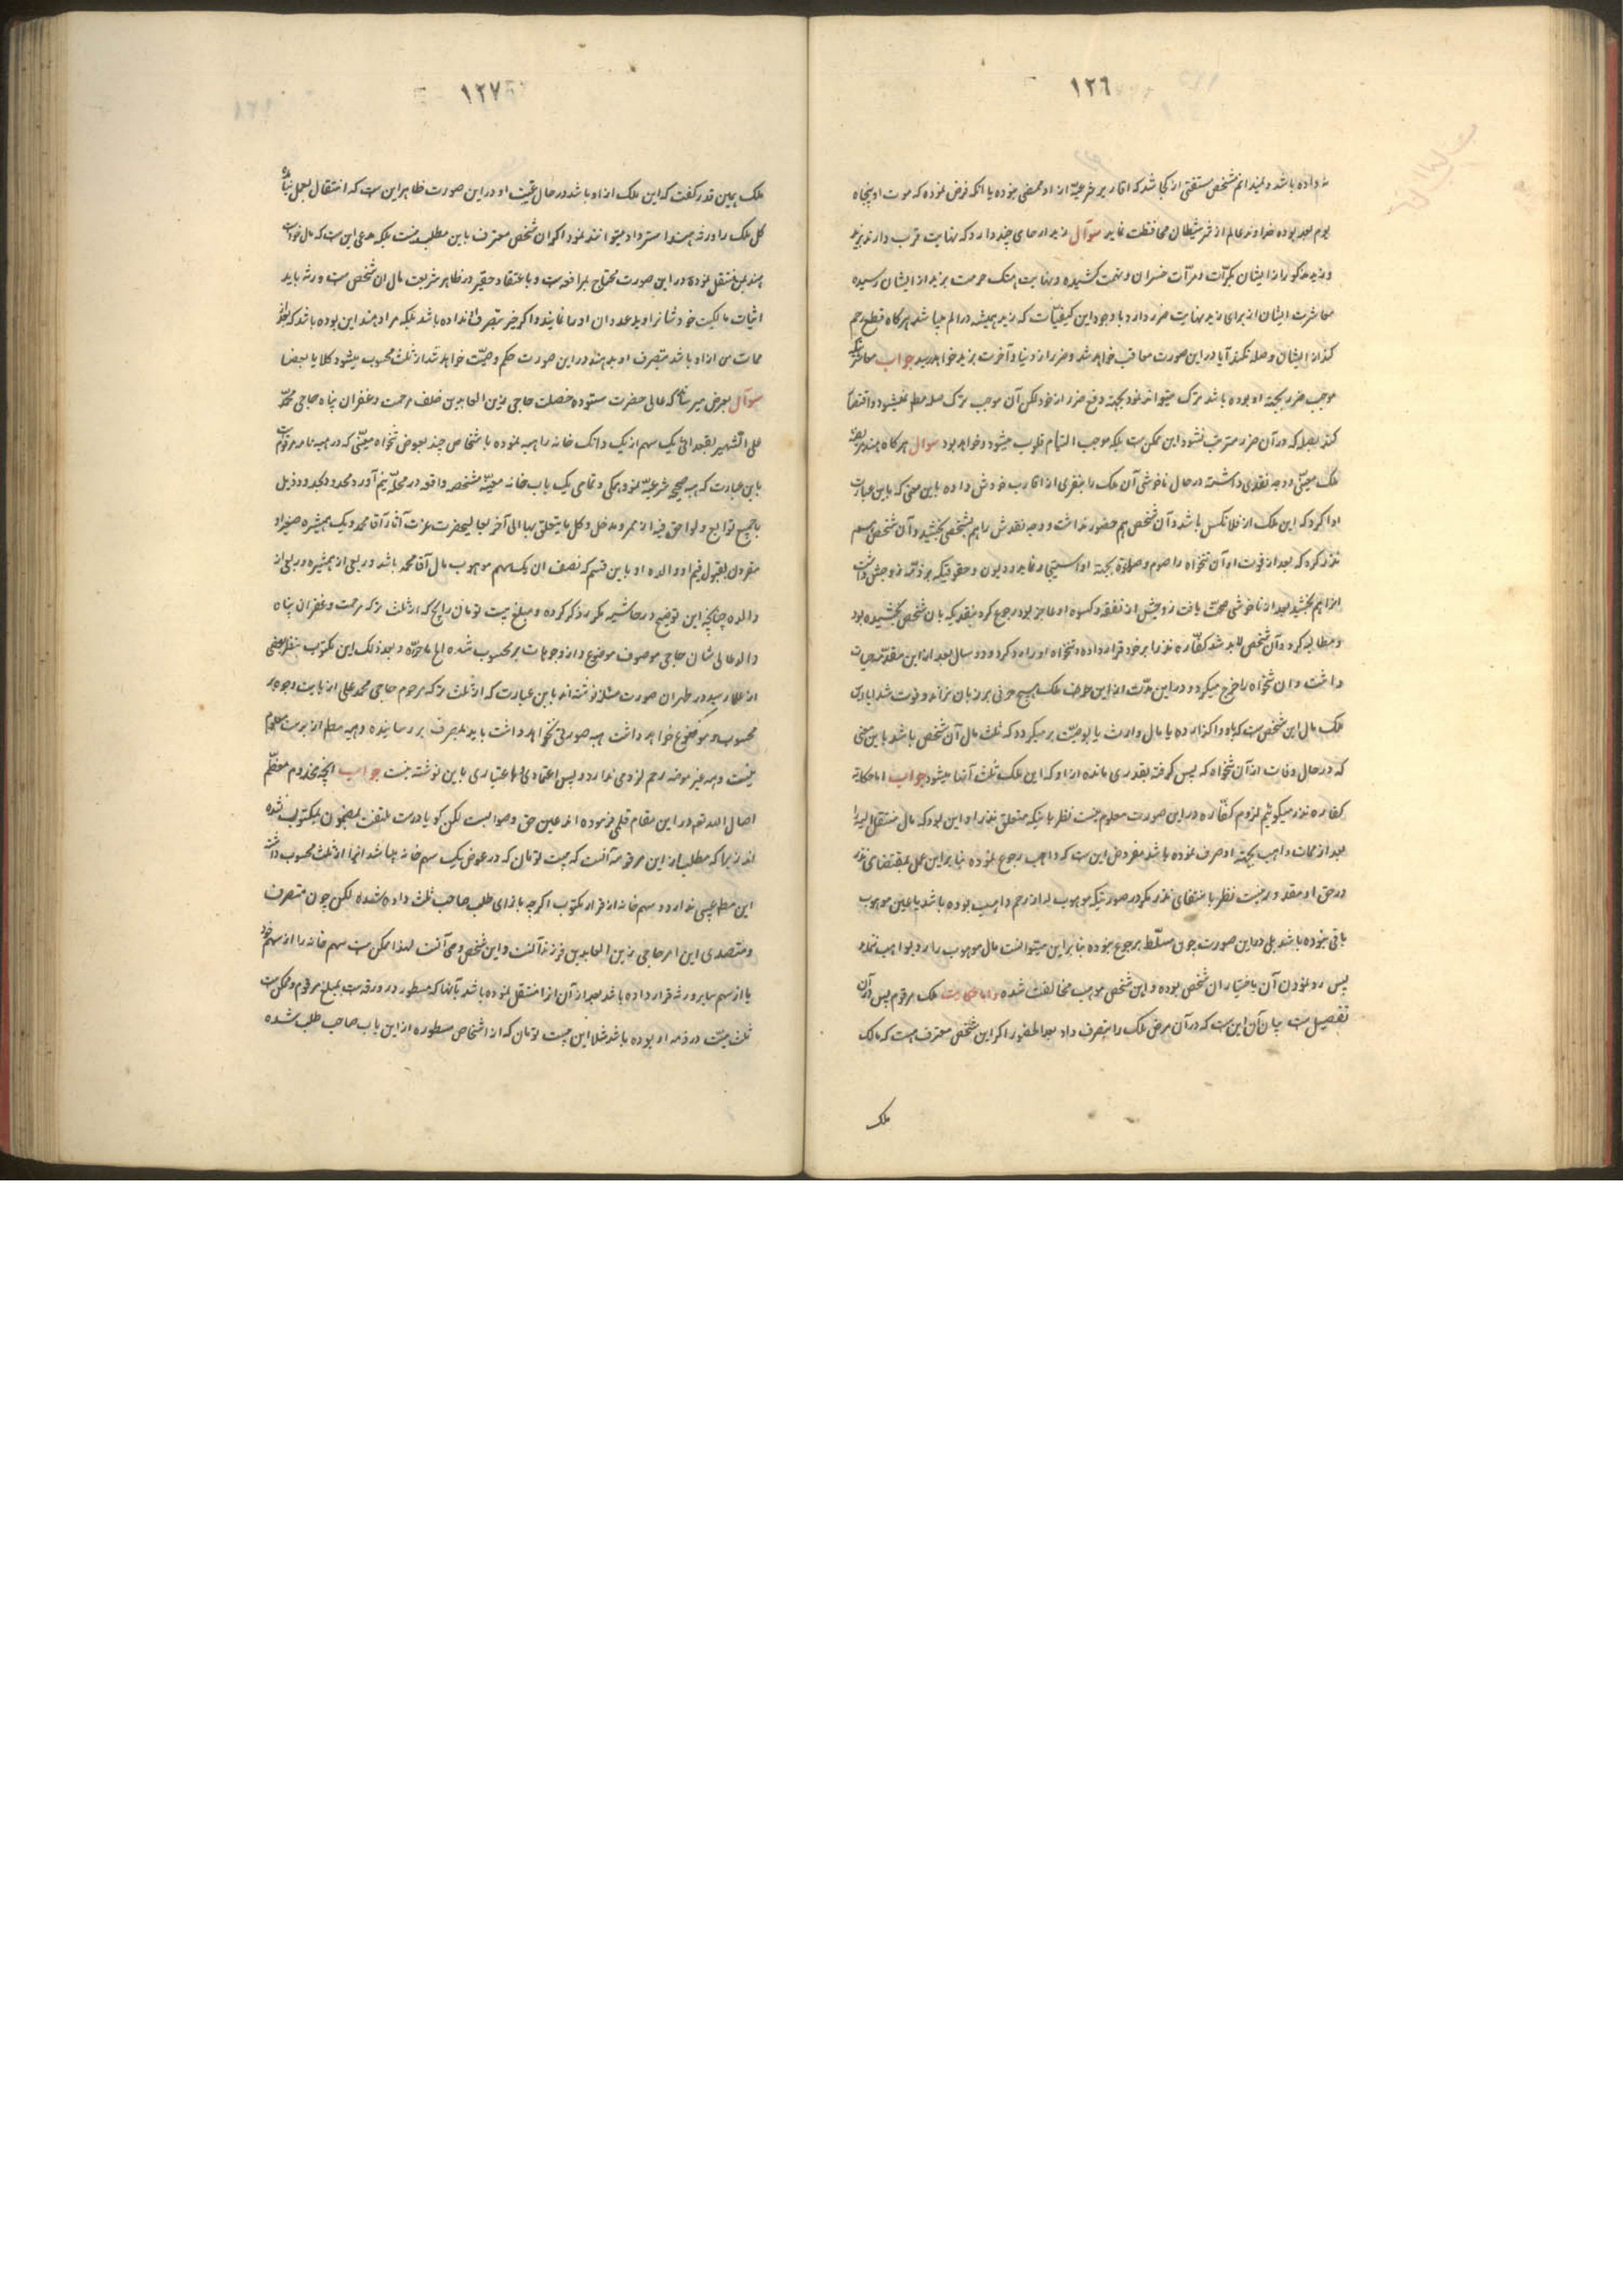 ١٢٦
نداده باشد و نمیدانم شخص مستفتی از کجا شد که اقاریر شرعیّه از او ممضی نبوده یا آنکه فرض نموده که موت او پنجاه
یوم بعد بوده خداوند عالم از شر شیطان محافظت نماید سوال زید ارحامی چند دارد که نهایت قرب دارند بزید
و زید مذکور از ایشان بکرّات و مرّات خسران و تهمت کشیده و نهایت هتک حرمت بزید از ایشان رسیده
معاشرت ایشان از برای زید نهایت ضرر دارد با وجود این کیفیّات که زید همیشه در الم میباشد هرکاه قطع رحم
کند از ایشان و صله نکند آیا در این صورت معاقب خواهد شد و ضرر از دنیا و آخرت بزید خواهد رسید جواب معاشرتیکه
موجب ضرر بجهة او بوده باشد ترک میتواند نمود بجهة دفع ضرر از خود لکن آن موجب ترک صله رحم نمیشود و اقتصار
کند بصله که در آن ضرر مترتب نشود این ممکن است بلکه موجب التیام قلوب میشود و خواهد بود سوال هرکاه هند مریضه
ملک معیّنی و وجه نقدی داشته در حال ناخوشی آن ملک را بنفری از اقارب خودش داده باین معنی که باین عبارت
ادا کرد که این ملک از فلانکس باشد و آن شخص هم حضور نداشت و وجه نقدش را هم بشخصی بخشید و آن شخص هم
نذر کرد که بعد از فوت او آن تنخواه را صوم و صلوة بجهة او استیجار نماید و دیون و حقوقیکه بر ذمّه زوجش داشت
انرا هم بخشید بعد از ناخوشی صحّت یافت زوجش از نفقه و کسوه او عاجز بود رجوع کرد بنقدیکه بان شخص بخشیده بود
و مطالبه کرد و آن شخص لابد شد کفّاره نذر را بر خود قرار داده و تنخواه او را رد کرد و دو سال بعد از این مقدّمه حیات
داشت و ان تنخواه را خرج میکرد و در این مدّت از این طرف ملک هیچ حرفی بر زبان نراند و فوت شد ایا این
ملک مال این شخص است که باو واکذارده یا مال وارث یا بوصیّت برمیکردد که ثلث مال آن شخص باشد باین معنی
که در حال وفات از آن تنخواه که پس کرفته بقدری مانده از او که این ملک ثلث آنها میشود جواب اما حکایة
کفاره نذر میکوئیم لزوم کفّاره در این صورت معلوم نیست نظر باینکه متعلق نذر او این بود که مال منتقل الیه را
بعد از ممات واهب بجهة او صرف نموده باشد مفروض این است که واهب رجوع نموده بنا براین عمل بمقتضای نذر
در حق او مقدور نیست نظر بانتفای نذر مکر در صورتیکه موهوب له از رحم واهب بوده باشد یا عین موهوب
باقی نبوده باشد بلی در این صورت چون مسلّط برجوع نبوده بنا براین میتوانست مال موهوب را رد بواهب ننماید
پس رد نمودن آن باختیار ان شخص بوده و این شخص موجب مخالفت شده و اما حکایت ملک مرقوم پس در آن
تفصیل است بیان آن این است که در آن مرض ملک را بتصرف داد بعد الحضور اکر این شخص معترف است که مالک
ملک
١٢٧
ملک همین قدر کفت که این ملک از او باشد در حال غیبت او در این صورت ظاهر این است که انتقال بعمل نیامده
کل ملک را ورثه هند استرداد میتوانند نمود اکر ان شخص معترف باین مطلب نیست بلکه مدعی این است که مال خود است
هند بمن منتقل نموده در این صورت محتاج بمرافعه است و باعتقاد حقیر در ظاهر شریعت مال ان شخص است ورثه باید
اثبات مالکیت خودشانرا و ید عدوان او را نمایند و اکر چیز بتصرف او نداده باشد بلکه مراد هند این بوده باشد که بعد از
ممات من از او باشد بتصرف او بدهند در این صورت حکم وصیّت خواهد شد از ثلث محسوب میشود کلا یا بعضا
سوال بعرض میرساند که عالی حضرت ستوده خصلت حاجی زین العابدین خلف مرحمت و غفران پناه حاجی محمّد
علی الشهیر بقبعدائی یک سهم از یک دانک خانه را هبه نموده باشخاص چند بعوض تنخواه معیّنی که در هبه نامه مرقوم است
باین عبارت که هبه صحیحه شرعیّه نمود همکی و تمامی یک باب خانه معیّنه مشخصه واقعه در محلّه نیم آورد محدود بحدود ذیل
با جمیع توابع و لواحق فیه از ممر و مدخل و کل ما یتعلق بها الی آخر بعالیحضرت عزت آثار آقا محمد و یک همشیره صغیر او
مقرون بقبول قیم او و والده او باین قسم که نصف ان یک سهم موهوب مال آقا محمد باشد و ربعی از همشیره و ربعی از
والده چنانچه این توضیح در حاشیه مکرر ذکر کرده و مبلغ بیست تومان رایج که از ثلث ترکه مرحمت و غفران پناه
والد عالیشان حاجی موصوف موضوع و از وجوهات بر محسوب شده الی ما حرّره و بعد ذلک این مکتوب بنظر بعضی
از علما رسید در طهران صورت مسئله نوشته اند باین عبارت که از ثلث ترکه مرحوم حاجی محمد علی از بابت وجوه بر
محسوب و موضوع خواهد داشت هبه صورتی نخواهد داشت باید بمصرف بر رسانیده و هبه مطلم از بر است معلوم
نیست و هبه غیر معوضه رحم لزومی ندارد و پس اعتمادی و اعتباری باین نوشته نیست جواب انچه مخدوم معظّم
اطال الله بقاه در این مقام قلمی فرموده اند عین حق و صوابست لکن کویا درست ملتفت بمضمون مکتوب نشده
اند زیرا که مطلب از این مرقومه آنست که بیست تومان که در عوض یک سهم خانه میباشد انرا از ثلث محسوب داشته
این مطلم عیبی ندارد و سهم خانه از قرار مکتوب اکرچه بازای طلب صاحب ثلث داده شده لکن چون متصرف
و متصدی این امر حاجی زین العابدین فرزند آنست و این شخص وصی آنست لهذا ممکن است سهم خانه را از سهم خود
یا از سهم سایر ورثه قرار داده باشد بعد از آن انرا منتقل نموده باشد بآنها که مسطور در ورقه است بمبلغ مرقوم و ممکن است
ثلث میّت در ذمه او بوده باشد مثلا این بیست تومان که از اشخاص مسطوره از این باب صاحب طلب شده